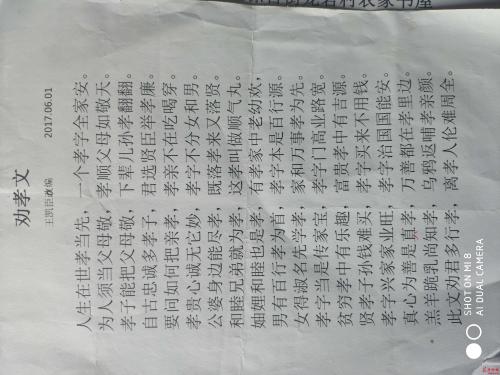 劝孝文
王凯臣改编 2017.06.01
人生在世孝当先，一个孝字全家安。
为人须当父母敬，孝顺父母如敬天。
孝子能把父母敬，下辈儿孙孝翻翻。
自古忠诚多孝子，君选贤臣举孝廉。
要问如何把亲孝，孝亲不在吃喝穿。
孝贵心诚无它妙，孝字不分女和男。
公婆身边能尽孝，既落孝来又落贤。
和睦兄弟就为孝，这孝叫做顺气丸。
妯娌和睦也是孝，有孝家中老幼欢，
男有百行孝为首，孝字本是百行源。
女得淑名先学孝，家和万事孝为先。
孝字当是传家宝，孝字门高业路宽。
贫穷孝中有乐趣，富贵孝中有吉源。
贤孝子孙钱难买，孝字买来不用钱。
孝字兴家家业旺，孝字治国国能安。
真心为善是真孝，万善都在孝里边。
羔羊跪乳尚知孝，乌鸦返哺孝亲颜。
此文劝君多行孝，离孝人伦难周全。
SHOT ON MI 8
AI DUAL CAMERA